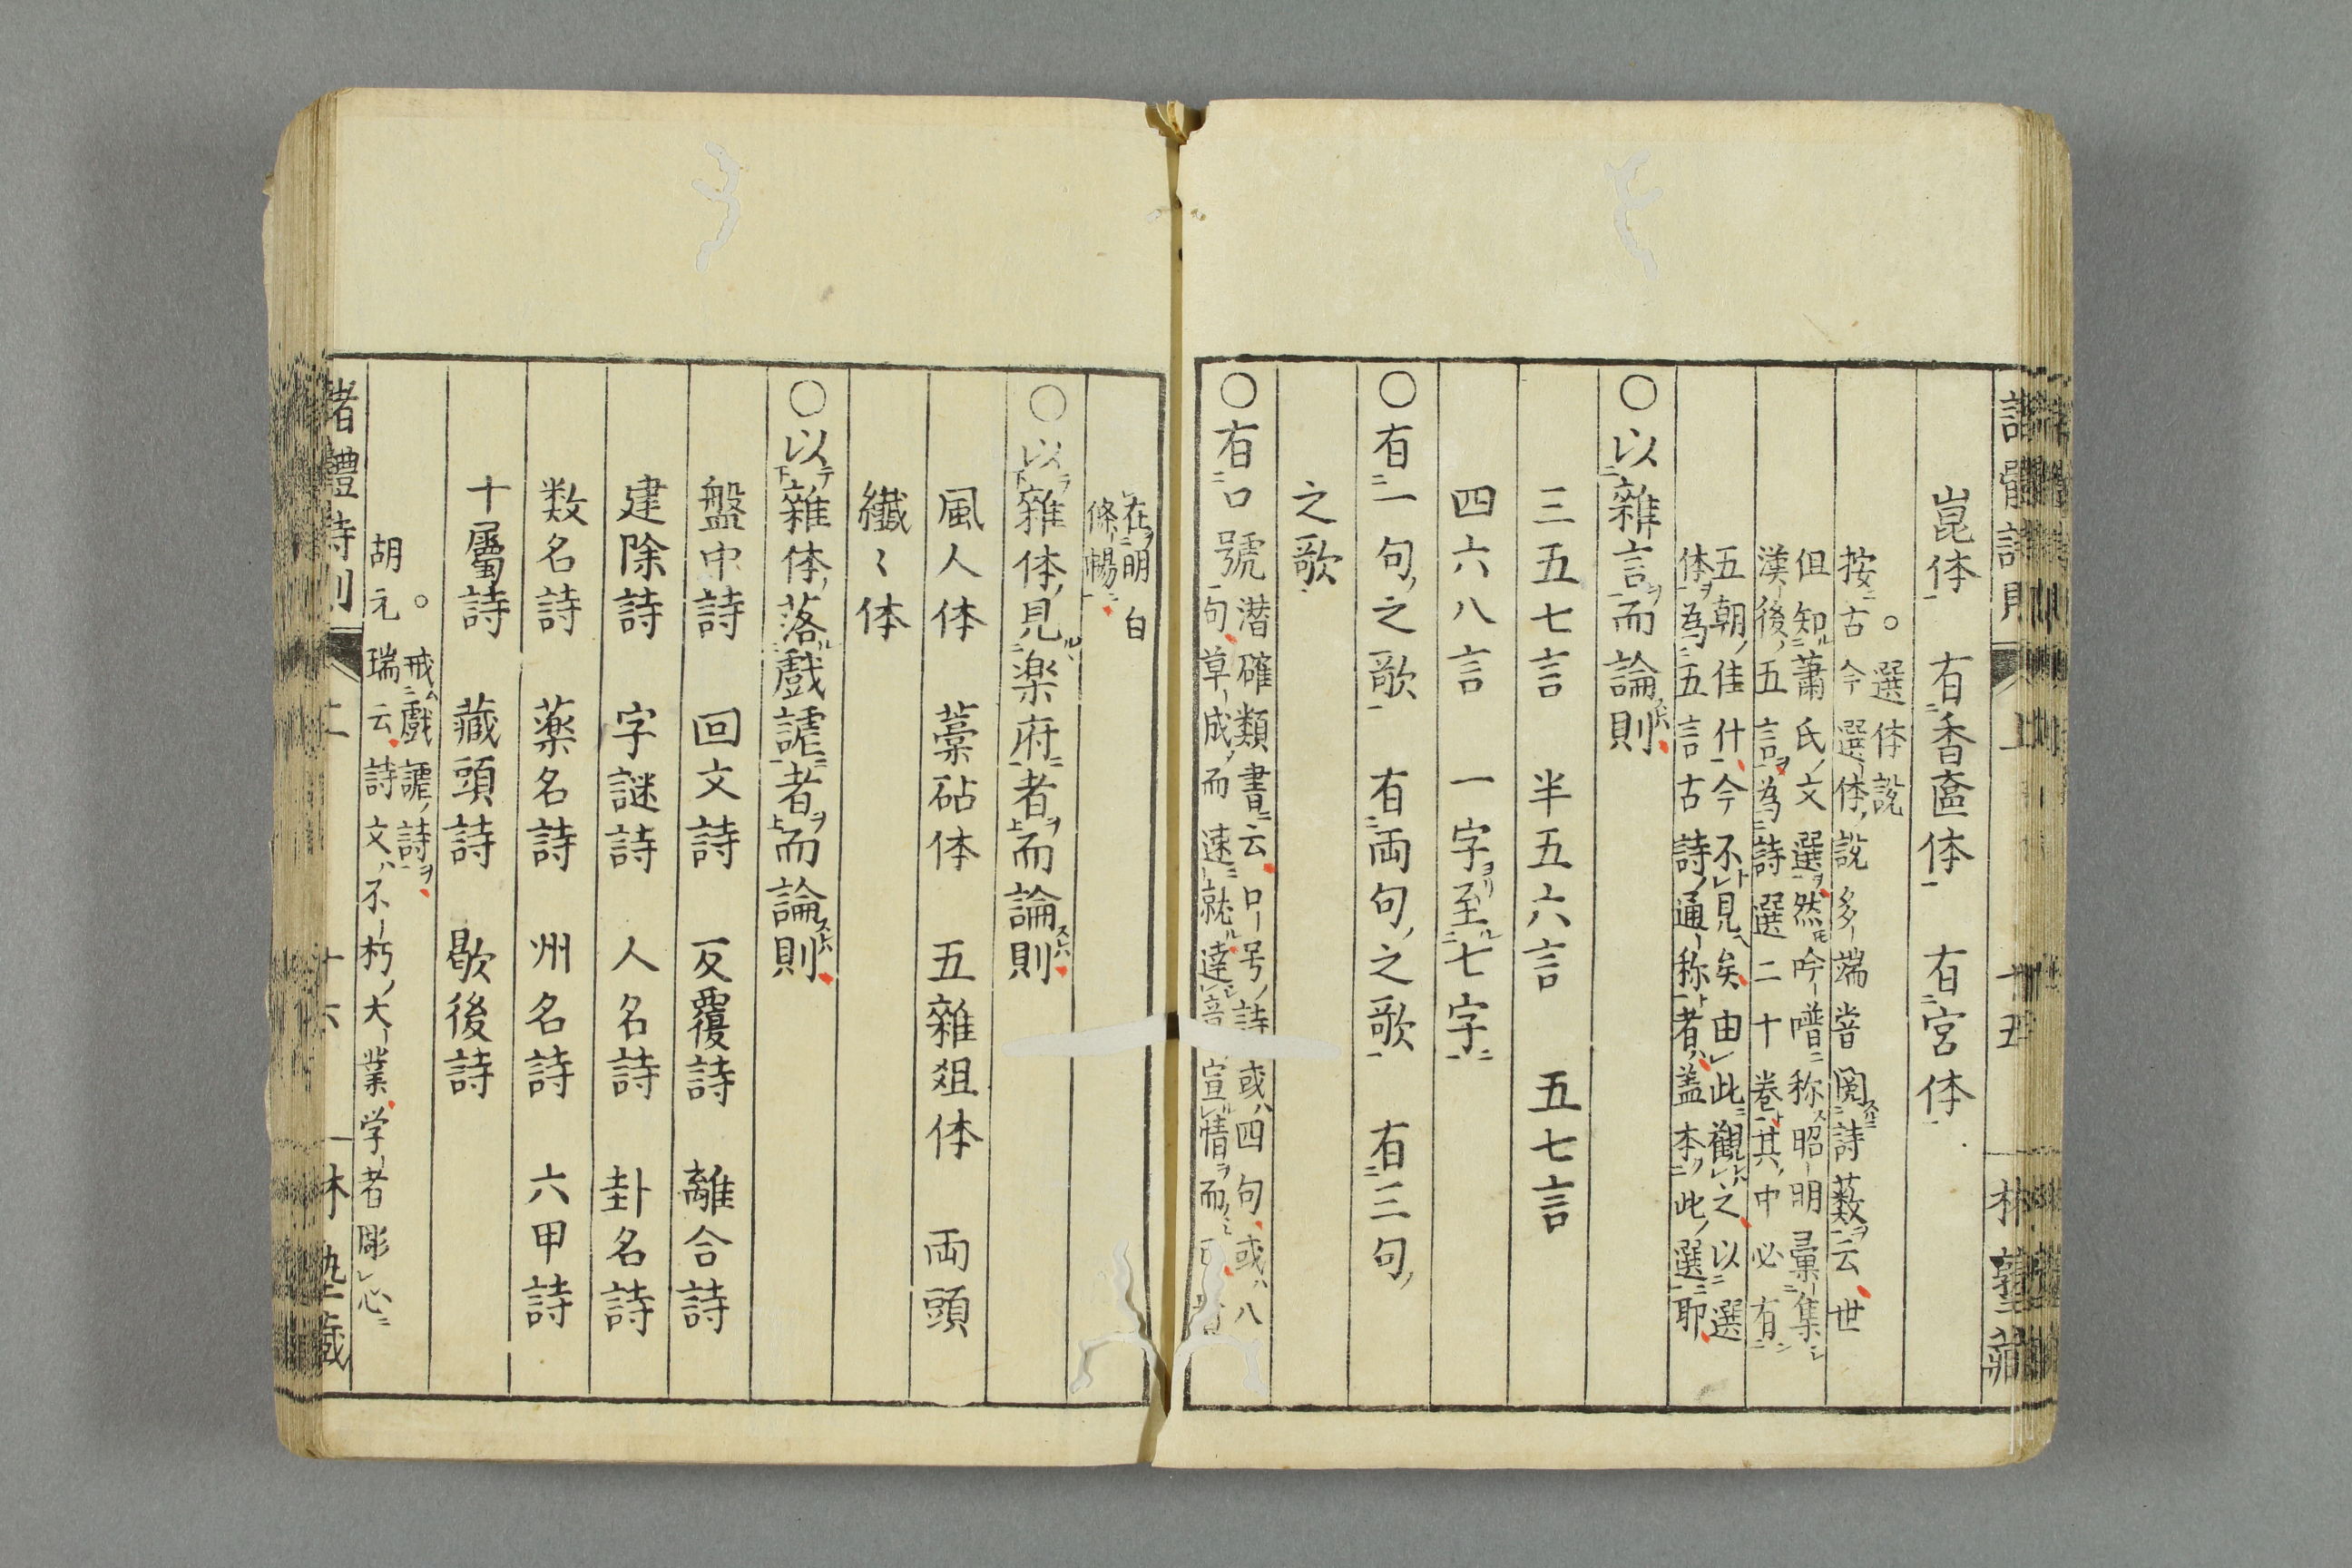 崑体 有香奩体 有宮体
選体説
按古今選体説多端嘗閲詩薮云世
但知蕭氏文選然吟噆称昭明彙集
漢後五言為詩選二十巻其中必有
五朝佳什今不見矣由此観之以選
体為五言古詩通称者蓋本此選耶
○以雜言而論則
三五七言 半五六言 五七言
四六八言 一字至七字
○有一句之歌 有両句之歌 有三句
之歌
○有口號
潜確類書云口号詩或四句或八
句草成而速就達 宣情而
在明白
條暢
○以雜体見楽府者而論則
風人体 藁砧体 五雜俎体 両頭
纎〻体
○以雜体落戲謔者而論則
盤中詩 回文詩 反覆詩 離合詩
建除詩 字謎詩 人名詩 卦名詩
数名詩 薬名詩 州名詩 六甲詩
十屬詩 藏頭詩 歇後詩
戒戲謔詩
胡元瑞云詩文不朽大業学者彫心
諸體詩則 上 十五 林塾藏
諸體詩則 上 十六 林塾藏